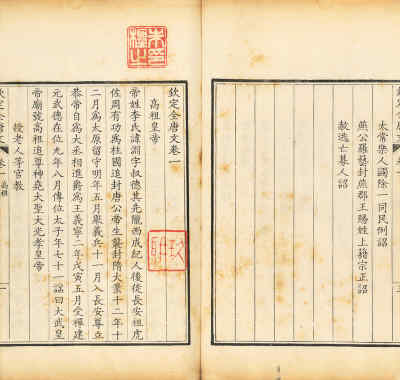 太常樂人蠲除一同民例詔
燕公羅藝封燕郡王賜姓上籍宗正詔
赦逃亡募人詔
欽定全唐文卷一
高祖皇帝
帝姓李氏諱淵字叔德其先隴西成紀人後徙長安祖虎
佐周有功爲柱國追封唐公帝生襲封隋大業十二年十
二月爲太原留守明年五月舉義兵十一月入長安尊立
恭帝自爲大丞相進爵爲王義寧二年戊寅五月受禪建
元武德在位九年八月傳位太子年七十一諡曰大武皇
帝廟號高祖追尊神堯大聖大光孝皇帝
授老人等官教